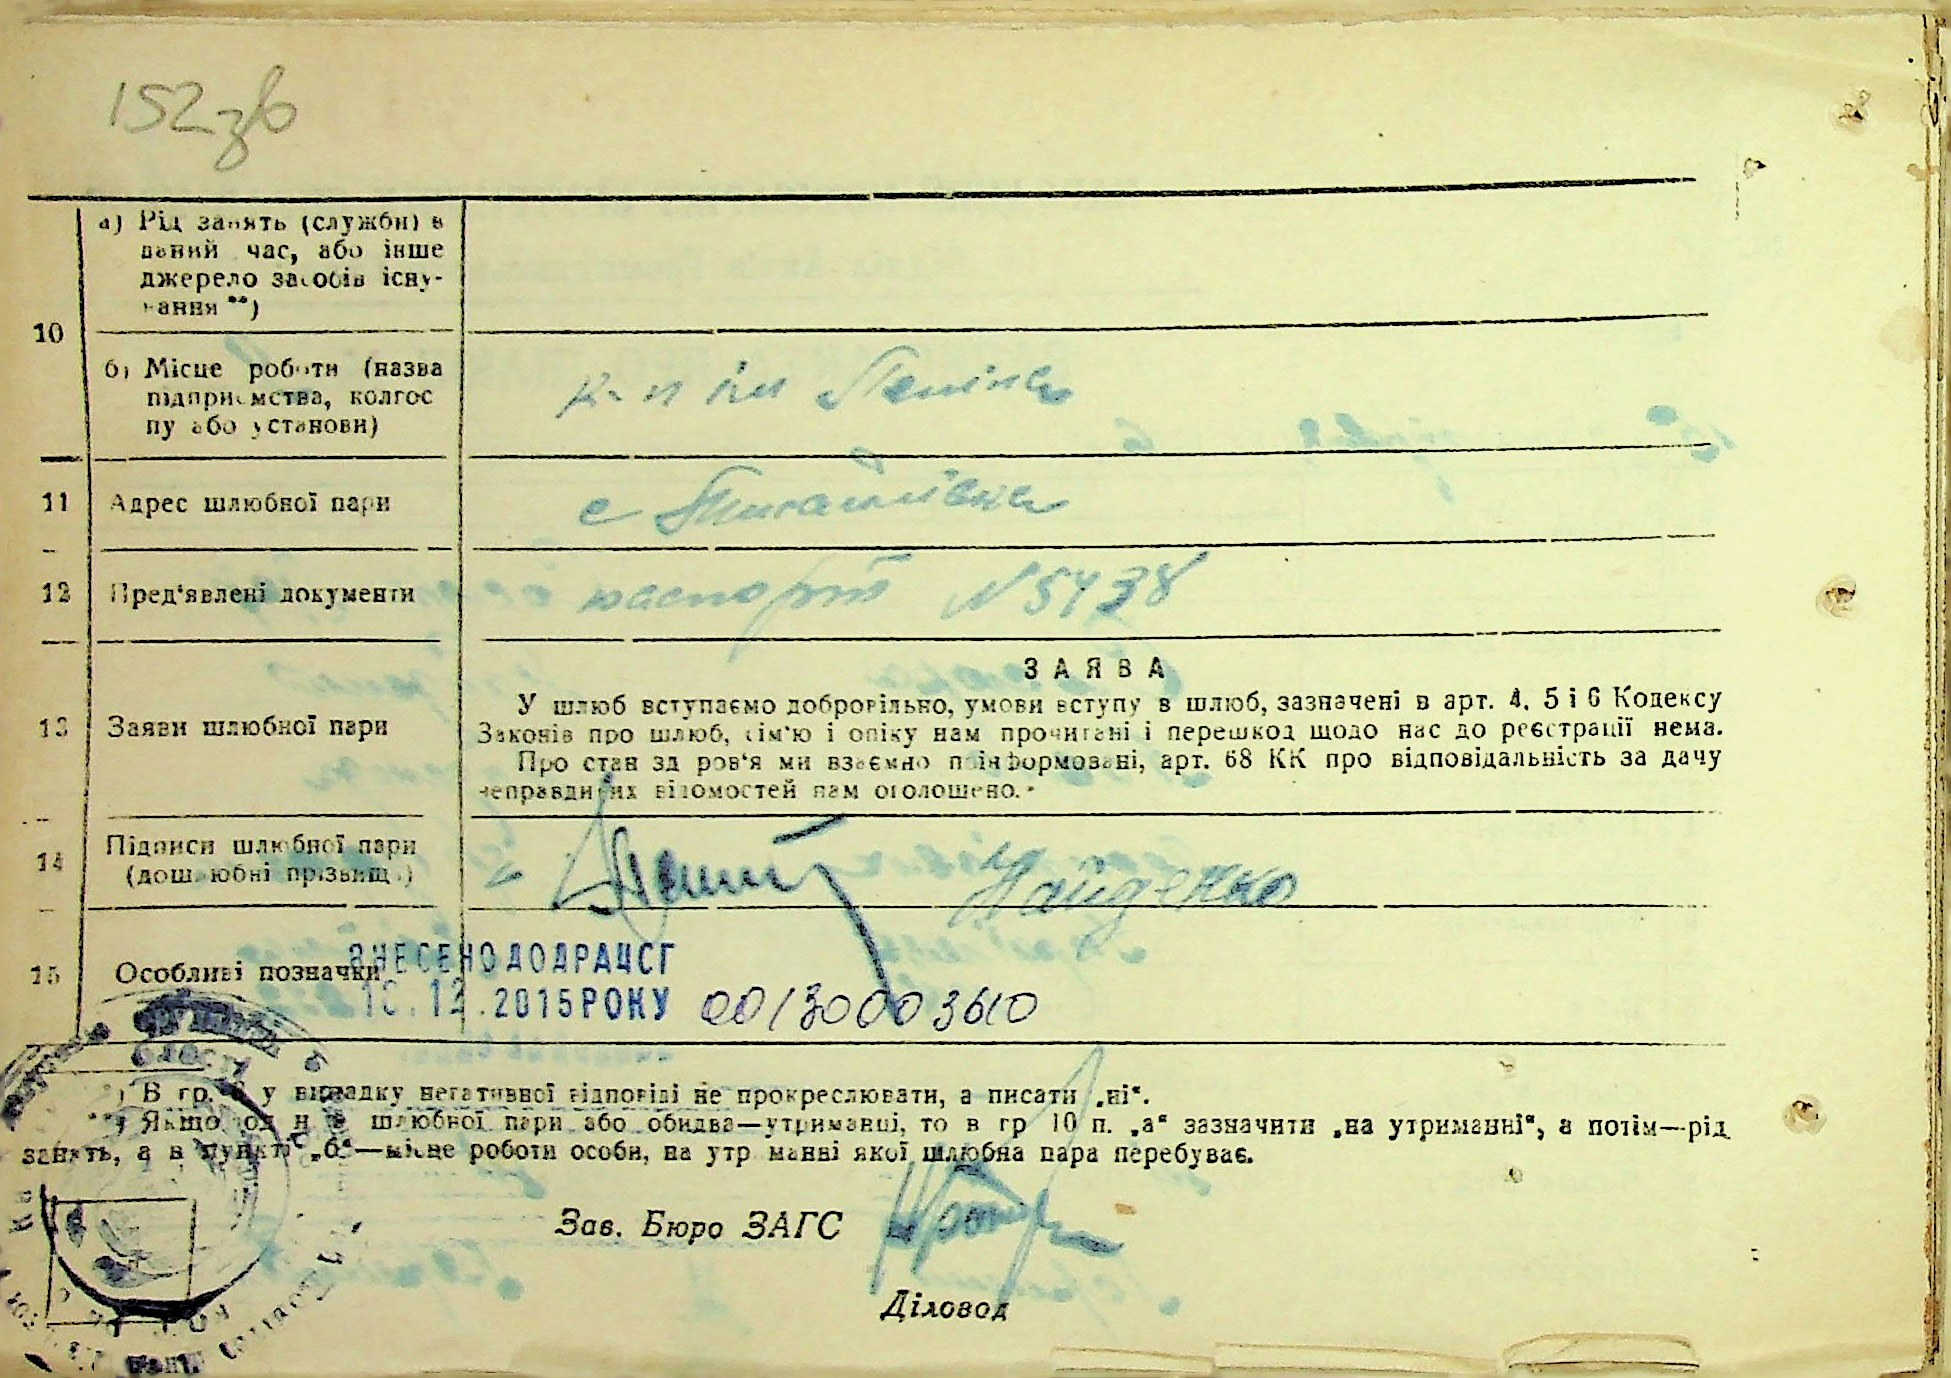 152зв
10
а) Рід занять (служби) в
даний час, або інше
джерело засобів існу-
вання **)
б) Місце роботи (назва
підприємства, колгос
пу або установи)
к-п ім Леніна
11
Адрес шлюбної пари
с
12
Пред'явлені документи
паспорт N 5438
13
Заяви шлюбної пари
ЗАЯВА
У шлюб вступаємо добровільно, умови вступу в шлюб, зазначені в арт. 4, 5 і 6 Кодексу
Законів про шлюб, сім'ю і опіку нам прочитані і перешкод щодо нас до реєстрації нема.
Про стан здоров'я ми взаємно поінформовані, арт. 68 КК про відповідальність за дачу
неправдивих відомостей нам оголошено.
14
Підписи шлюбної пари
(дошлюбні прізвища)
Найденко
15
Особливі позначки
ВНЕСЕНО ДО ДРАЦСГ
10.12.2015 РОКУ 00130003610
*) В гр. 8 у випадку негативної відповіді не прокреслювати, а писати „ні“.
**) Якщо один із шлюбної пари або обидва—утриманці, то в гр 10 п. „а“ зазначити „на утриманні“, а потім—рід
занять, а в пункті „б“—місце роботи особи, на утриманні якої шлюбна пара перебуває.
Зав. Бюро ЗАГС
Діловод